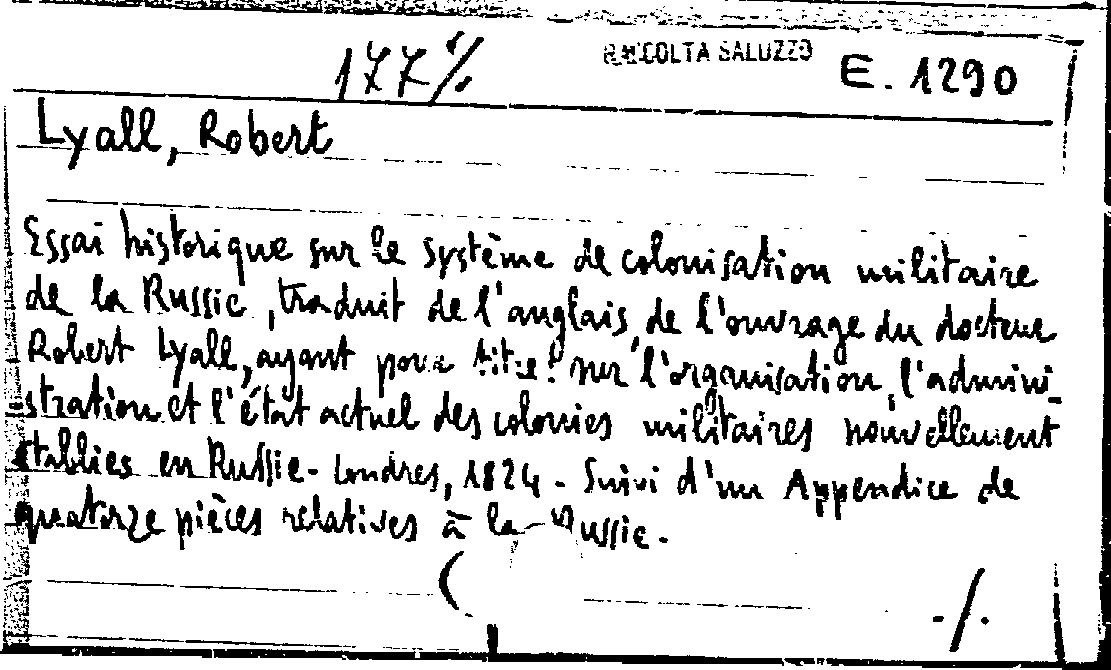 177% RACCOLTA SALUZZO E. 1290
Lyall, Robert
Essai historique sur le système de colonisation militaire
de la Russie, traduit de l'anglais, de l'ouvrage du docteur
Robert Lyall, ayant pour titre: sur l'organisation, l'admini-
stration et l'état actuel des colonies militaires nouvellement
établies en Russie - Londres, 1824 - Suivi d'un Appendice de
quatorze pièces relatives à la Russie.
./.